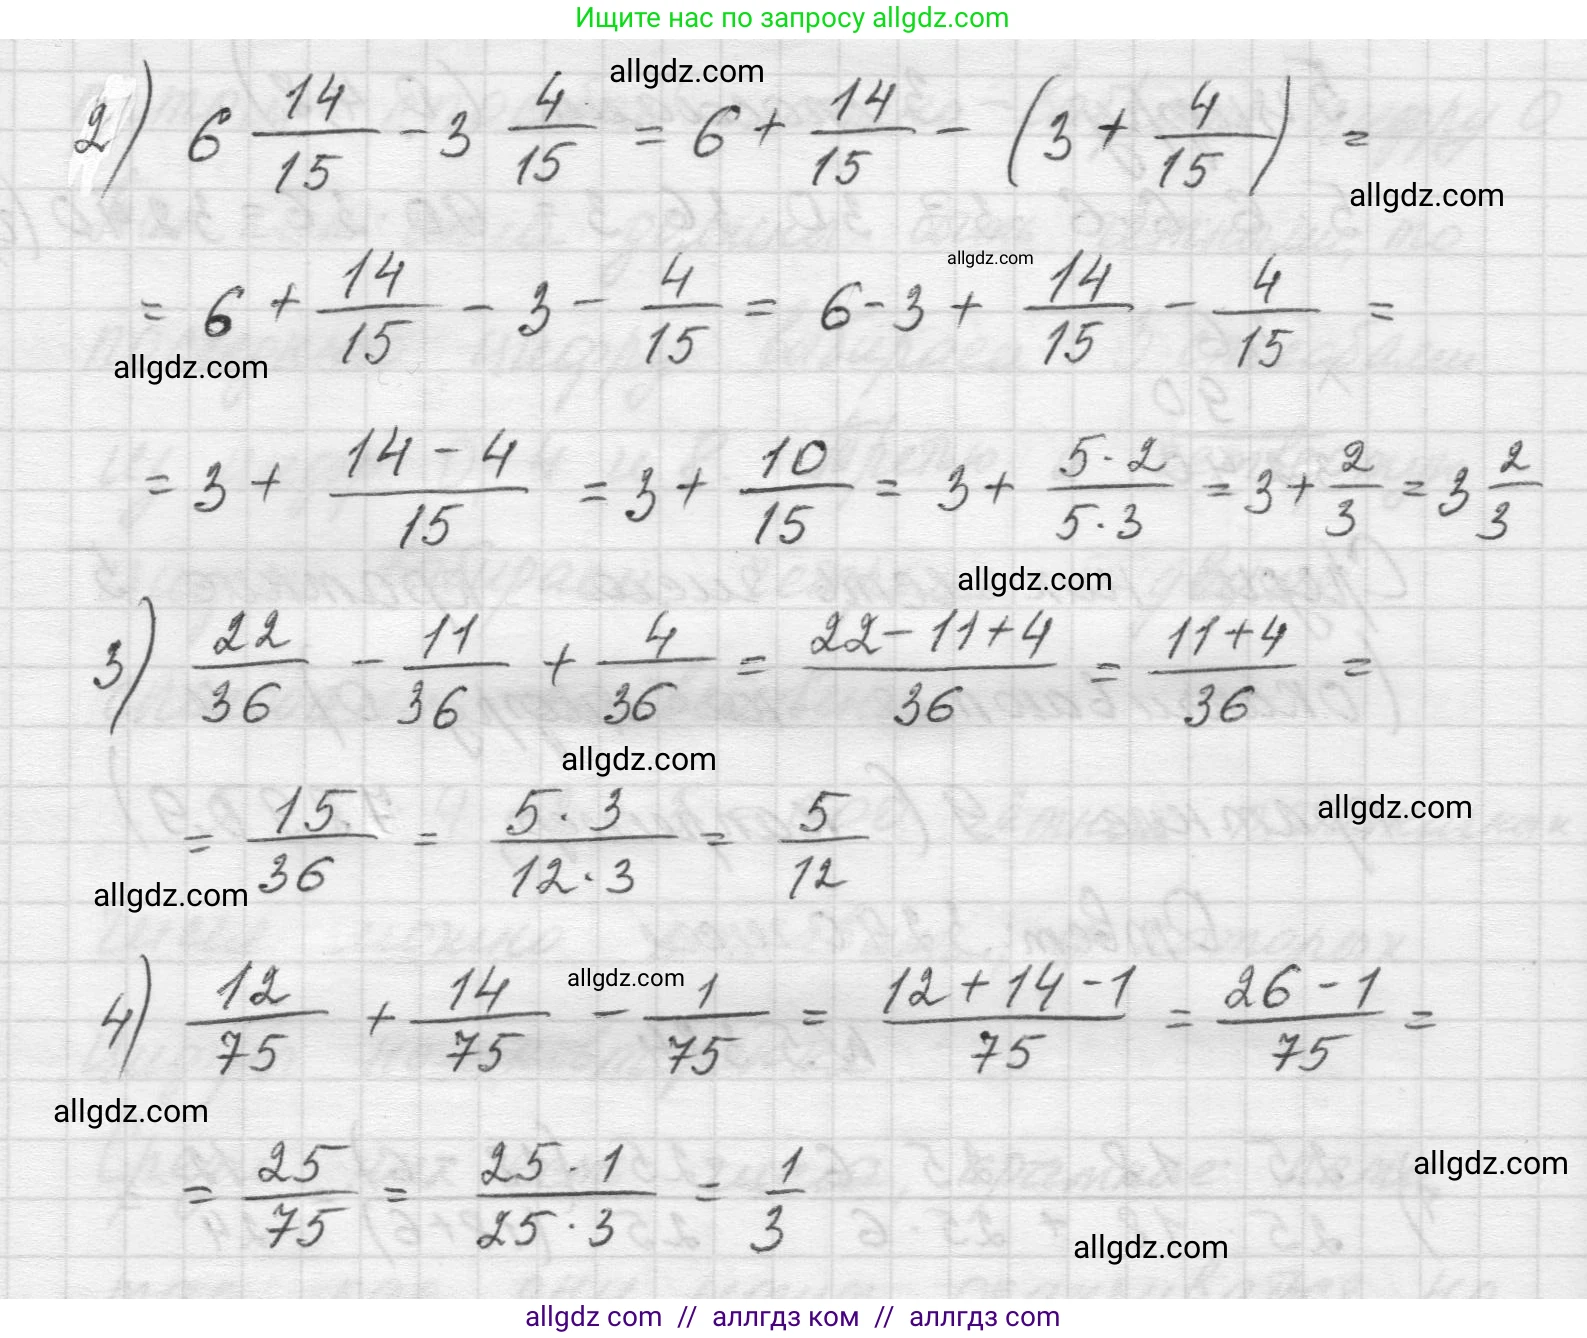 Ищите нас по запросу allgdz.com
allgdz.com
2) 6 14/15 - 3 4/15 = 6 + 14/15 - (3 + 4/15) =
allgdz.com
allgdz.com
= 6 + 14/15 - 3 - 4/15 = 6 - 3 + 14/15 - 4/15 =
allgdz.com
= 3 + (14 - 4)/15 = 3 + 10/15 = 3 + (5 · 2)/(5 · 3) = 3 + 2/3 = 3 2/3
allgdz.com
3) 22/36 - 11/36 + 4/36 = (22 - 11 + 4)/36 = (11 + 4)/36 =
allgdz.com
allgdz.com
= 15/36 = (5 · 3)/(12 · 3) = 5/12
allgdz.com
allgdz.com
4) 12/75 + 14/75 - 1/75 = (12 + 14 - 1)/75 = (26 - 1)/75 =
allgdz.com
allgdz.com
= 25/75 = (25 · 1)/(25 · 3) = 1/3
allgdz.com
allgdz.com // аллгдз ком // аллгдз com